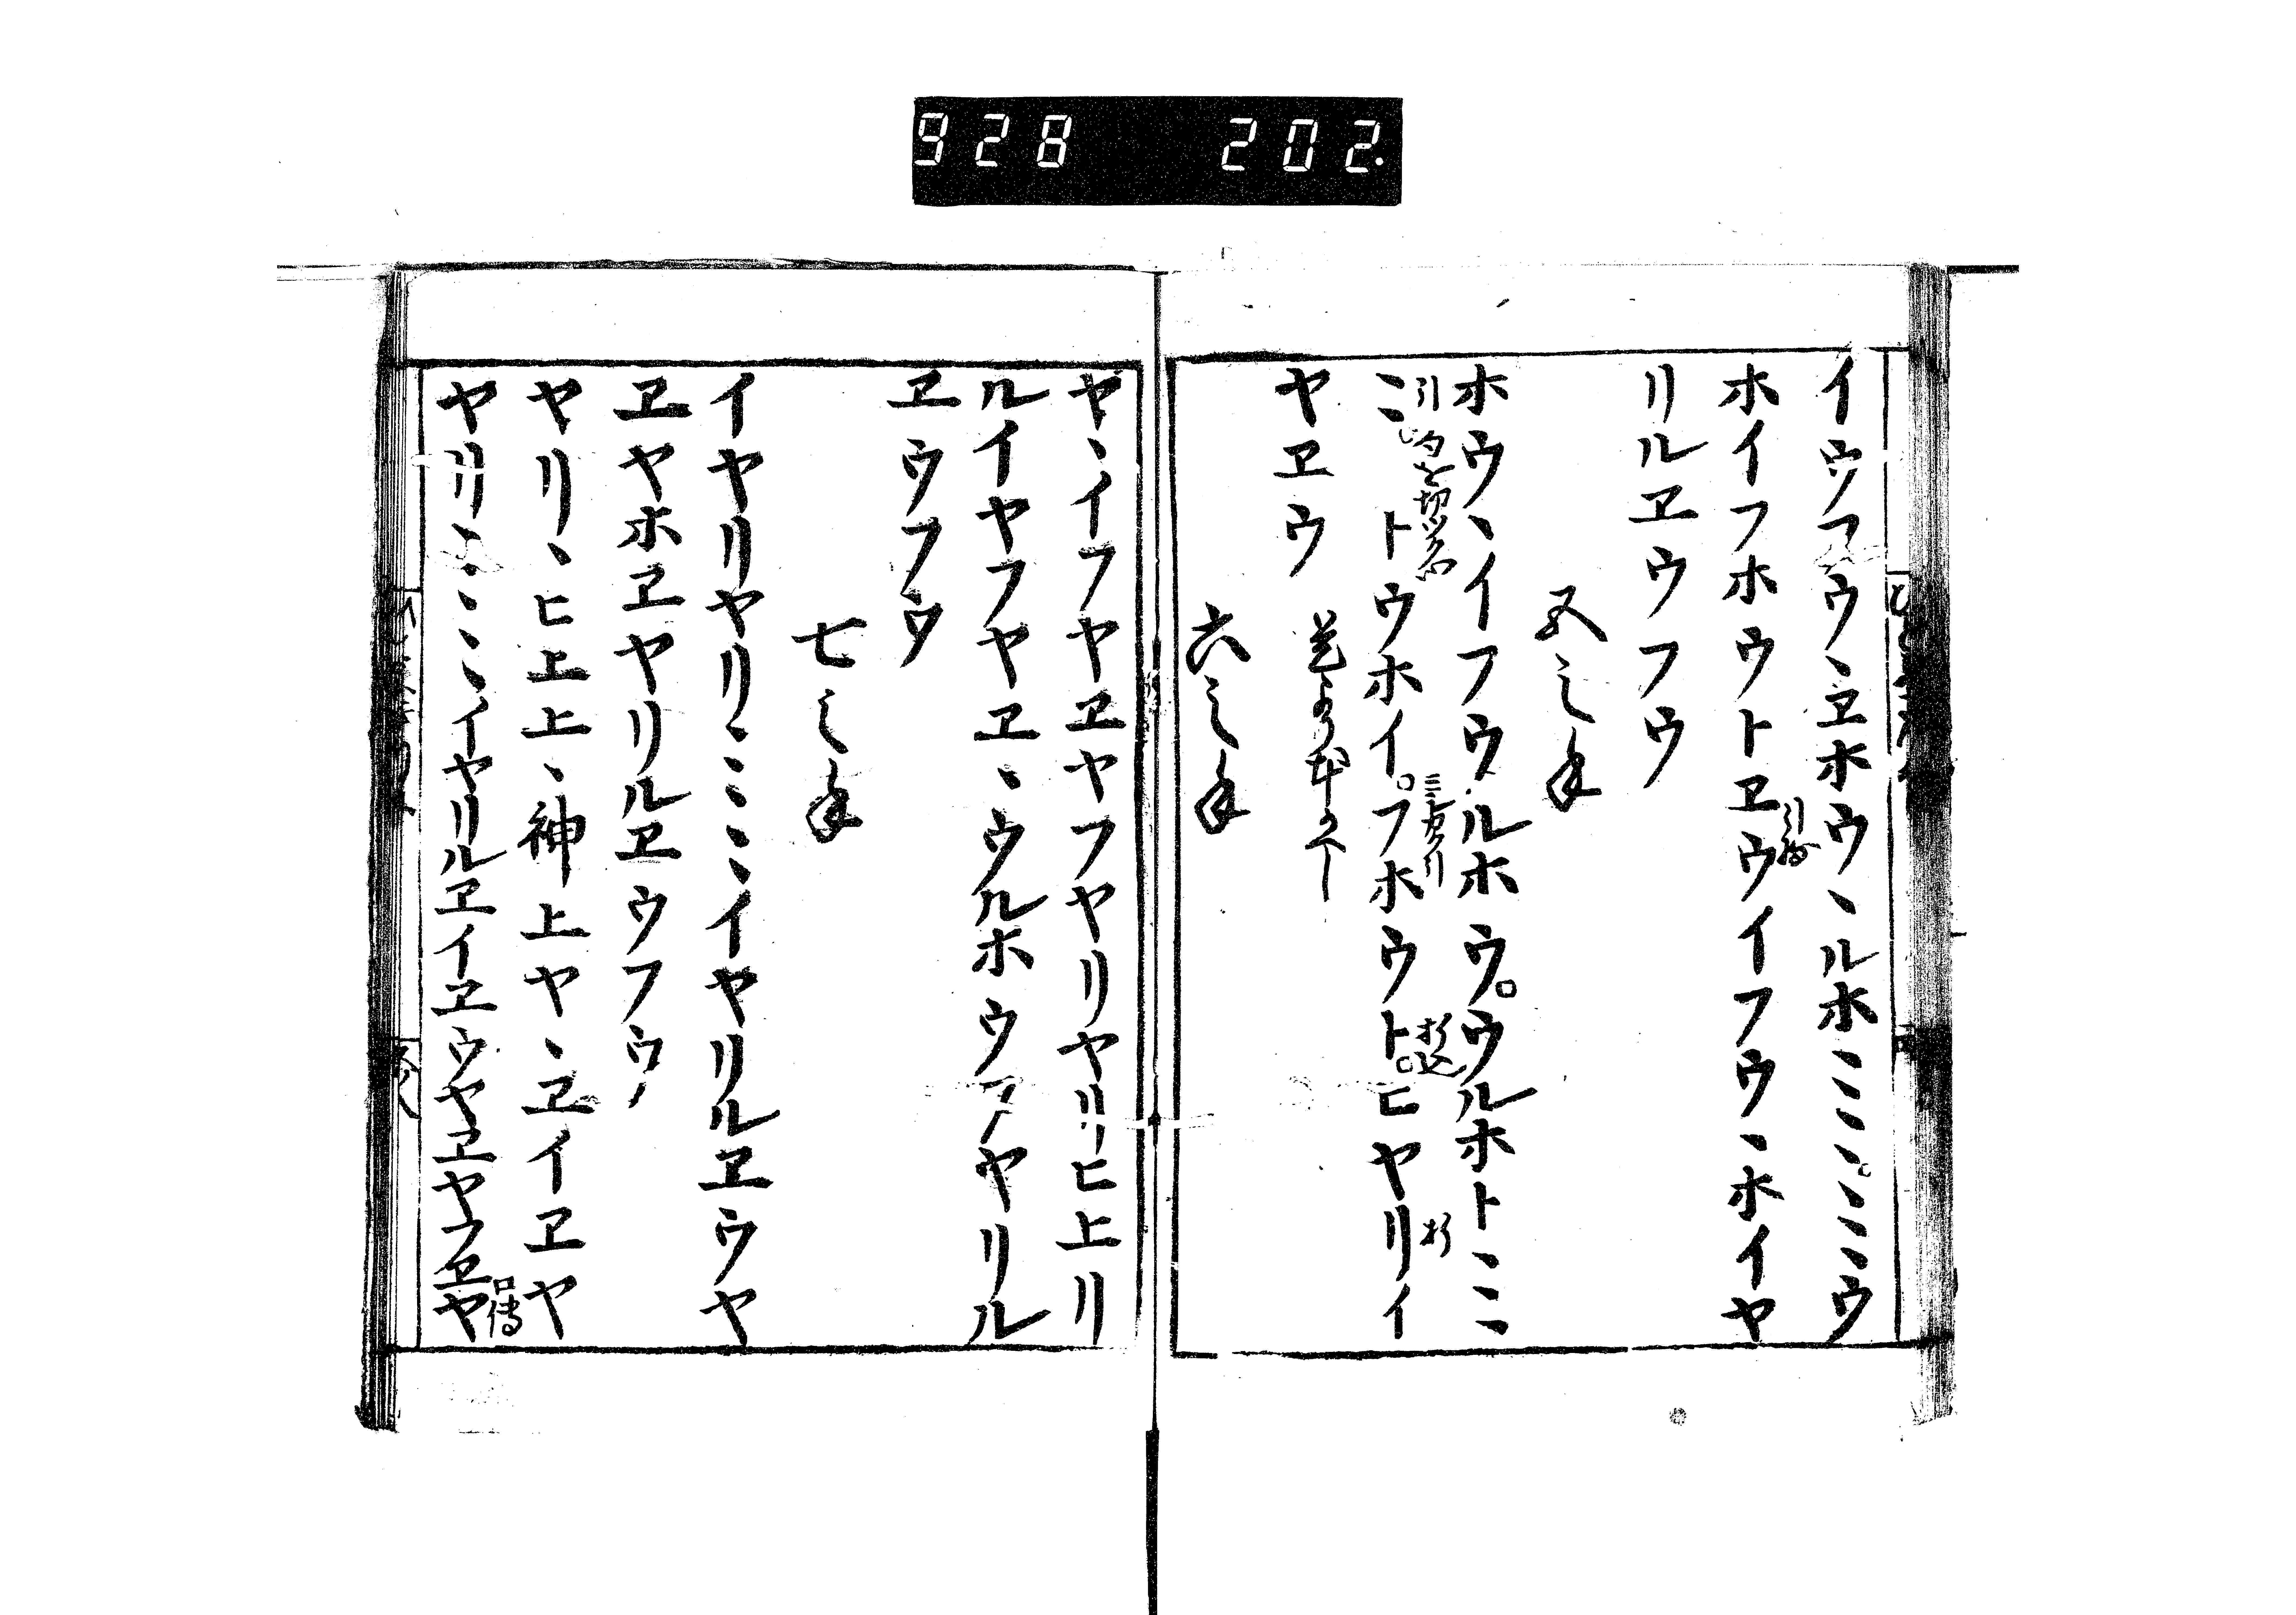 928 202.
イウフウヽヱホウヽルホミミヽミミウ
ホイフホウトヱウイフウヽホイヤ
リルヱウフウ
五之手
ホウヽイフウルホウ。ウルホトミミ
ミトウホイ。フホウト。ヒヤリイ
ヤヱウ
六之手
ヤヽイフヤヱヤフヤリヤリヒ上リ
ルイヤフヤヱヽウルホウフヤリル
ヱウフウ
七之手
イヤリヤリミミミヽイヤリルヱウヤ
ヱヤホヱヤリルヱウフウ
ヤリヽヒ上上ヽ神上ヤヽヱイヱヤ
ヤリミミミヽイヤリルヱイヱウヤヱヤウヱヤ
口傳